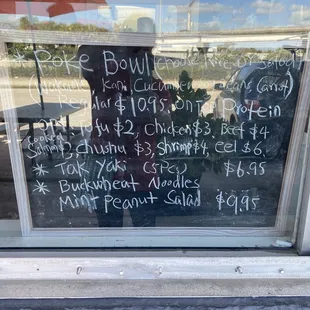 * Poke Bowl (choose Rice or Salad)
Kani, Cucumber, Carrot)
Regular $10.95, One Protein
Tofu $2, Chicken $3, Beef $4
Salmon $3, chushu $3, Shrimp $4, eel $6.
* Tak Yaki (5pcs) $6.95
* Buckwheat Noodles
Mint Peanut Salad $9.95